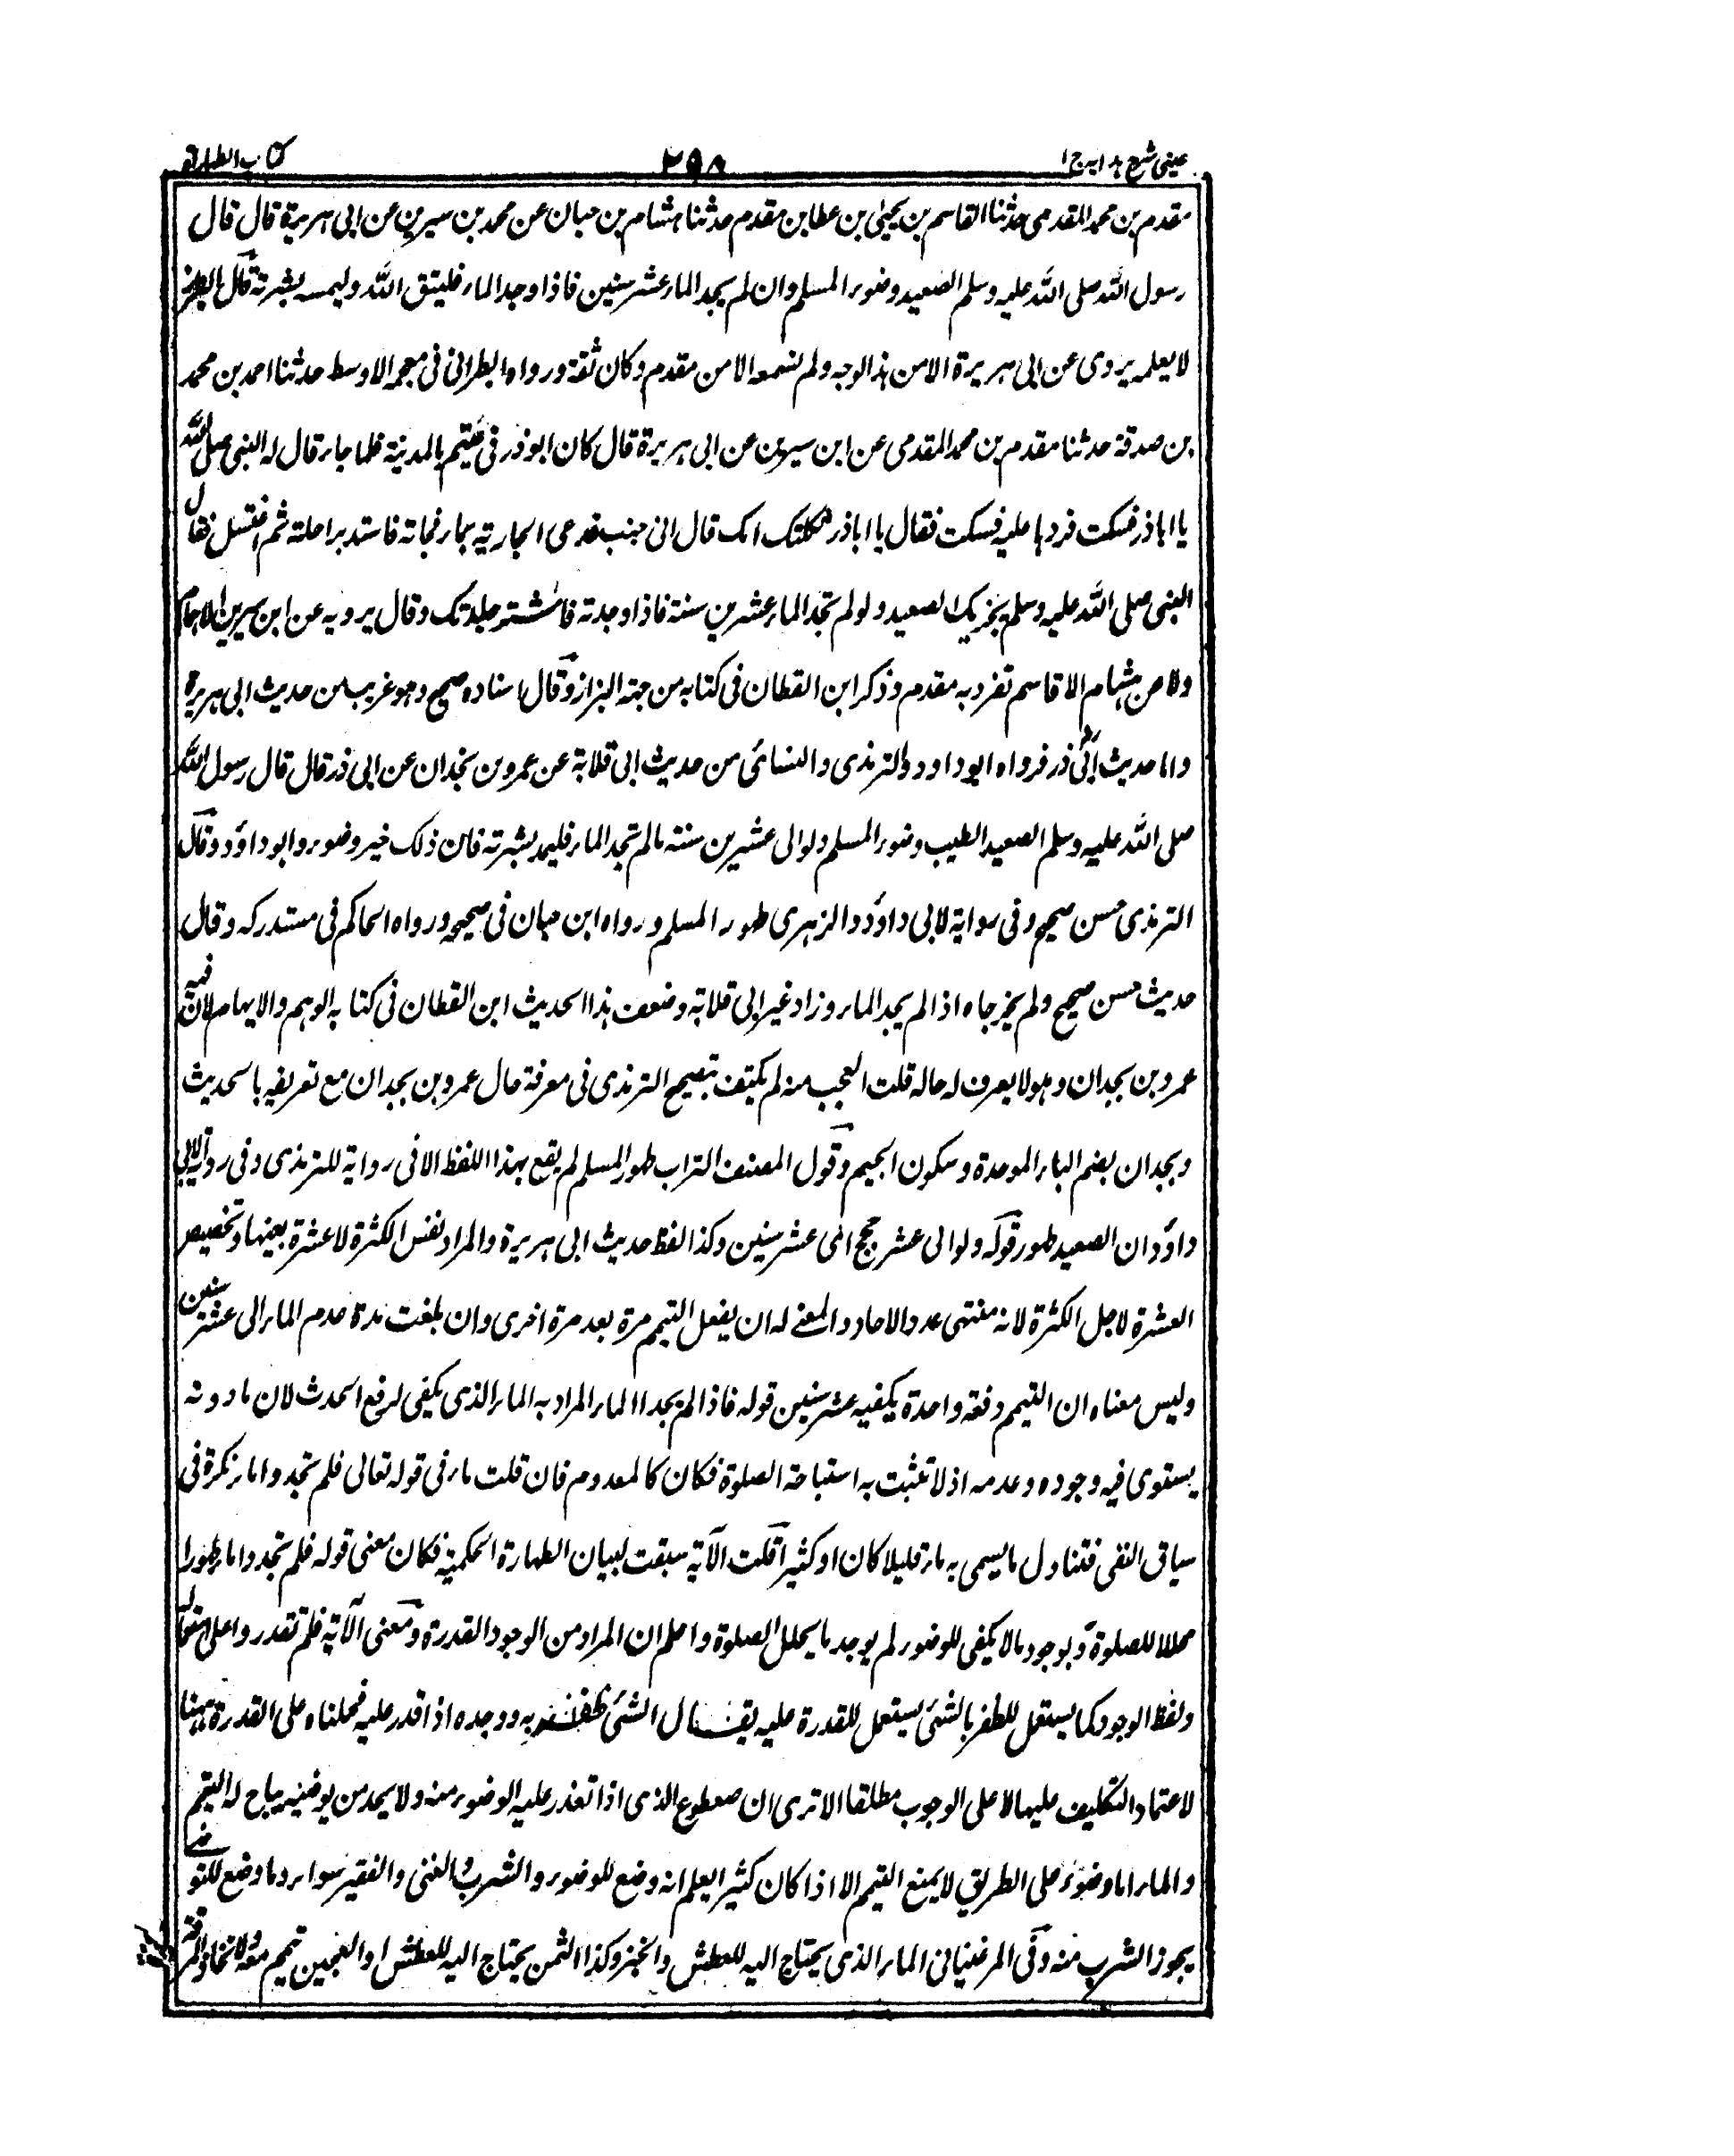 عینی شرح ہدایہ ج ۱
۲۹۸
کتاب الطہارة
مقدم بن محمد المقدمی حدثنا القاسم بن یحییٰ بن عطا بن مقدم حدثنا ہشام بن حبان عن محمد بن سیرین عن ابی ہریرة قال قال
رسول اللہ صلی اللہ علیہ وسلم الصعید وضوء المسلم وان لم یجد الماء عشر سنین فاذا وجد الماء فلیتق اللہ ولیمسہ بشرتہ قال البزاز
لا یعلم یروی عن ابی ہریرة الا من ہذا الوجہ ولم نسمعہ الا من مقدم وکان ثقة ورواہ الطبرانی فی معجمہ الاوسط حدثنا احمد بن محمد
بن صدقة حدثنا مقدم بن محمد المقدمی عن ابن سیرین عن ابی ہریرة قال کان ابوذر فی غنیتم بالمدینة فلما جاء قال لہ النبی صلی اللہ
یا اباذر فسکت فردہا علیہ فسکت فقال یا اباذر ثکلتک امک قال انی جنب فدعی الجاریة بماء فجاتہ فاستدبر احلتہ ثم اغتسل فقال
النبی صلی اللہ علیہ وسلم یجزیک الصعید ولو لم تجد الماء عشرین سنة فاذا وجدتہ جلدتک وقال یرویہ عن ابن سیرین الا ہشام
ولا عن ہشام الا قاسم تفرد بہ مقدم وذکر ابن القطان فی کتابہ من جہة البزاز وقال اسنادہ صحیح وہو غریب من حدیث ابی ہریرة
واما حدیث ابی ذر فرواہ ابوداود والترمذی والنسائی من حدیث ابی قلابة عن عمرو بن بجدان عن ابی ذر قال قال رسول اللہ
صلی اللہ علیہ وسلم الصعید الطیب وضوء المسلم ولو الی عشرین سنة مالم تجد الماء فلیمہ بشرتہ فان ذلک خیر وضوء وابوداؤد وقال
الترمذی حسن صحیح وفی روایة لابی داؤد والزہری طہور المسلم ورواہ ابن حبان فی صحیحہ ورواہ الحاکم فی مستدرکہ وقال
حدیث حسن صحیح ولم یخرجاہ اذا لم یجد الماء وزاد غیر ابی قلابة وضعف ہذا الحدیث ابن القطان فی کتابہ الوہم والایہام لان فیہ
عمرو بن بجدان وہو لا یعرف لہ حالہ قلت العجب منہ لم یکتف بتصحیح الترمذی فی معرفة حال عمرو بن بجدان مع تعریفہ بالحدیث
وبجدان بضم الباء الموحدة وسکون الجیم وقول المصنف التراب طہور المسلم لم یقع بہذا اللفظ الا فی روایة للترمذی وفی روایة لابی
داؤد ان الصعید طہور قولہ ولو الی عشر حجج ای عشر سنین وکذا لفظ حدیث ابی ہریرة والمراد نفس الکثرة لا عشرة بعینہا وتخصیص
العشرة لاجل الکثرة لانہ منتہی عدد الاحاد والمعنے لہ ان یفعل التیمم مرة بعد مرة اخری وان بلغت مدة عدم الماء الی عشر سنین
ولیس معناہ ان التیمم دفعة واحدة یکفیہ عشر سنین قولہ فاذا لم یجد الماء المراد بہ الماء الذی یکفی لرفع الحدث لان ما دونہ
یستوی فیہ وجودہ وعدمہ اذ لا تثبت بہ استباحة الصلوة فکان کالمعدوم فان قلت ماء فی قولہ تعالی فلم تجدوا ماء نکرة فی
سیاق النفی فتناول ما یسمی بہ ماء قلیلا کان او کثیرا قلت الآیة سبقت لبیان الطہارة الحکمیة فکان معنی قولہ فلم تجدوا ماء طہورا
محللا للصلوة وبوجود مالا یکفی للوضوء لم یوجد ما یحلل الصلوة واعلم ان المراد من الوجود القدرة ومعنی الآیة فلم تقدروا علی استعمالہ
ولفظ الوجود کما یستعمل للظفر بالشئ یستعمل للقدرة علیہ یقال الشئ ظفر بہ ووجدہ اذا قدر علیہ فحملناہ علی القدرة ہہنا
لاعتماد التکلیف علیہا لا علی الوجوب مطلقا الا تری ان مقطوع الذی اذا تعذر علیہ الوضوء منہ ولا یجد من یوضیہ یباح لہ التیمم
والماء اما وضؤ علی الطریق لا یمنع التیمم الا اذا کان کثیرا یعلم انہ وضع للوضوء والشرب والغنی والفقیر سواء وما وضع للتوضے
یجوز الشرب منہ وفی المرغینیانی الماء الذی یحتاج الیہ للعطش والخبز وکذا الثمن یحتاج الیہ للعطش او العجین تیمم معہ